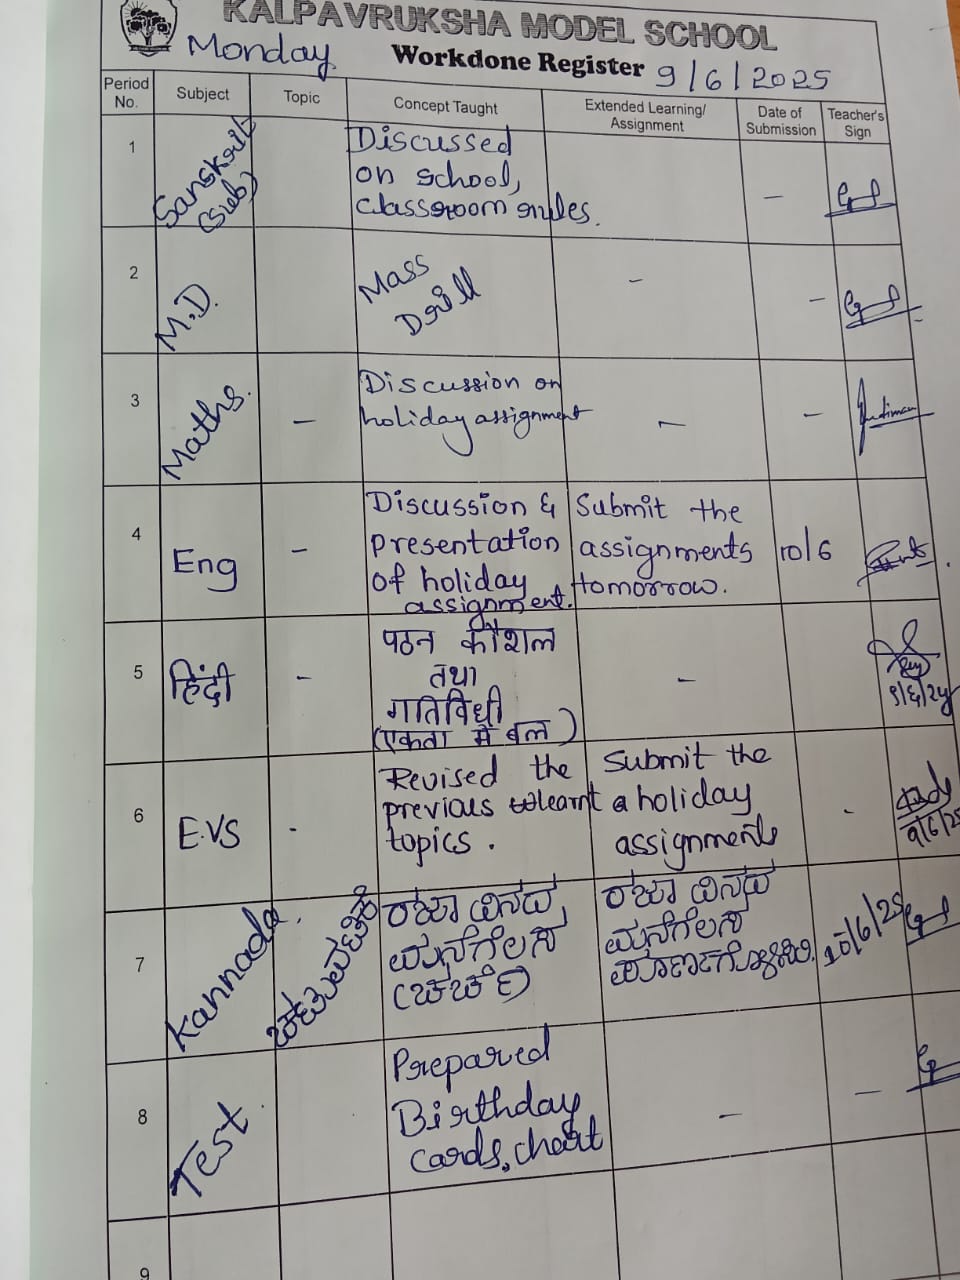 KALPAVRUKSHA MODEL SCHOOL
Monday
Workdone Register 9/6/2025
Period No. Subject Topic Concept Taught Extended Learning/ Assignment Date of Submission Teacher's Sign
1 Sanskrit (Sub)
Discussed
on school,
classroom rules.
–
2 M.D.
Mass
Drill
– –
3 Maths. –
Discussion on
holiday assignment
– –
4 Eng –
Discussion &
presentation
of holiday
assignment.
Submit the
assignments
tomorrow.
10/6
5 हिंदी –
पठन कौशल
तथा
गतिविधी
(एकता में बल)
–
9/6/24
6 E.VS -
Revised the
previous learnt
topics.
Submit the
holiday
assignments
-
9/6/25
7 Kannada. ಚಟುವಟಿಕೆ
ರಜಾ ದಿನದ
ಮನೆಗೆಲಸ
(ಚರ್ಚೆ)
ರಜಾ ದಿನದ
ಮನೆಗೆಲಸ
10/6/25
8 Test
Prepared
Birthday
cards, chart
– –
9